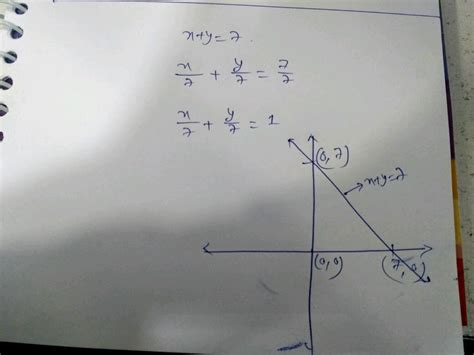 x+y=7.
x/7 + y/7 = 7/7
x/7 + y/7 = 1
(0,7)
x+y=7
(0,0)
(7,0)